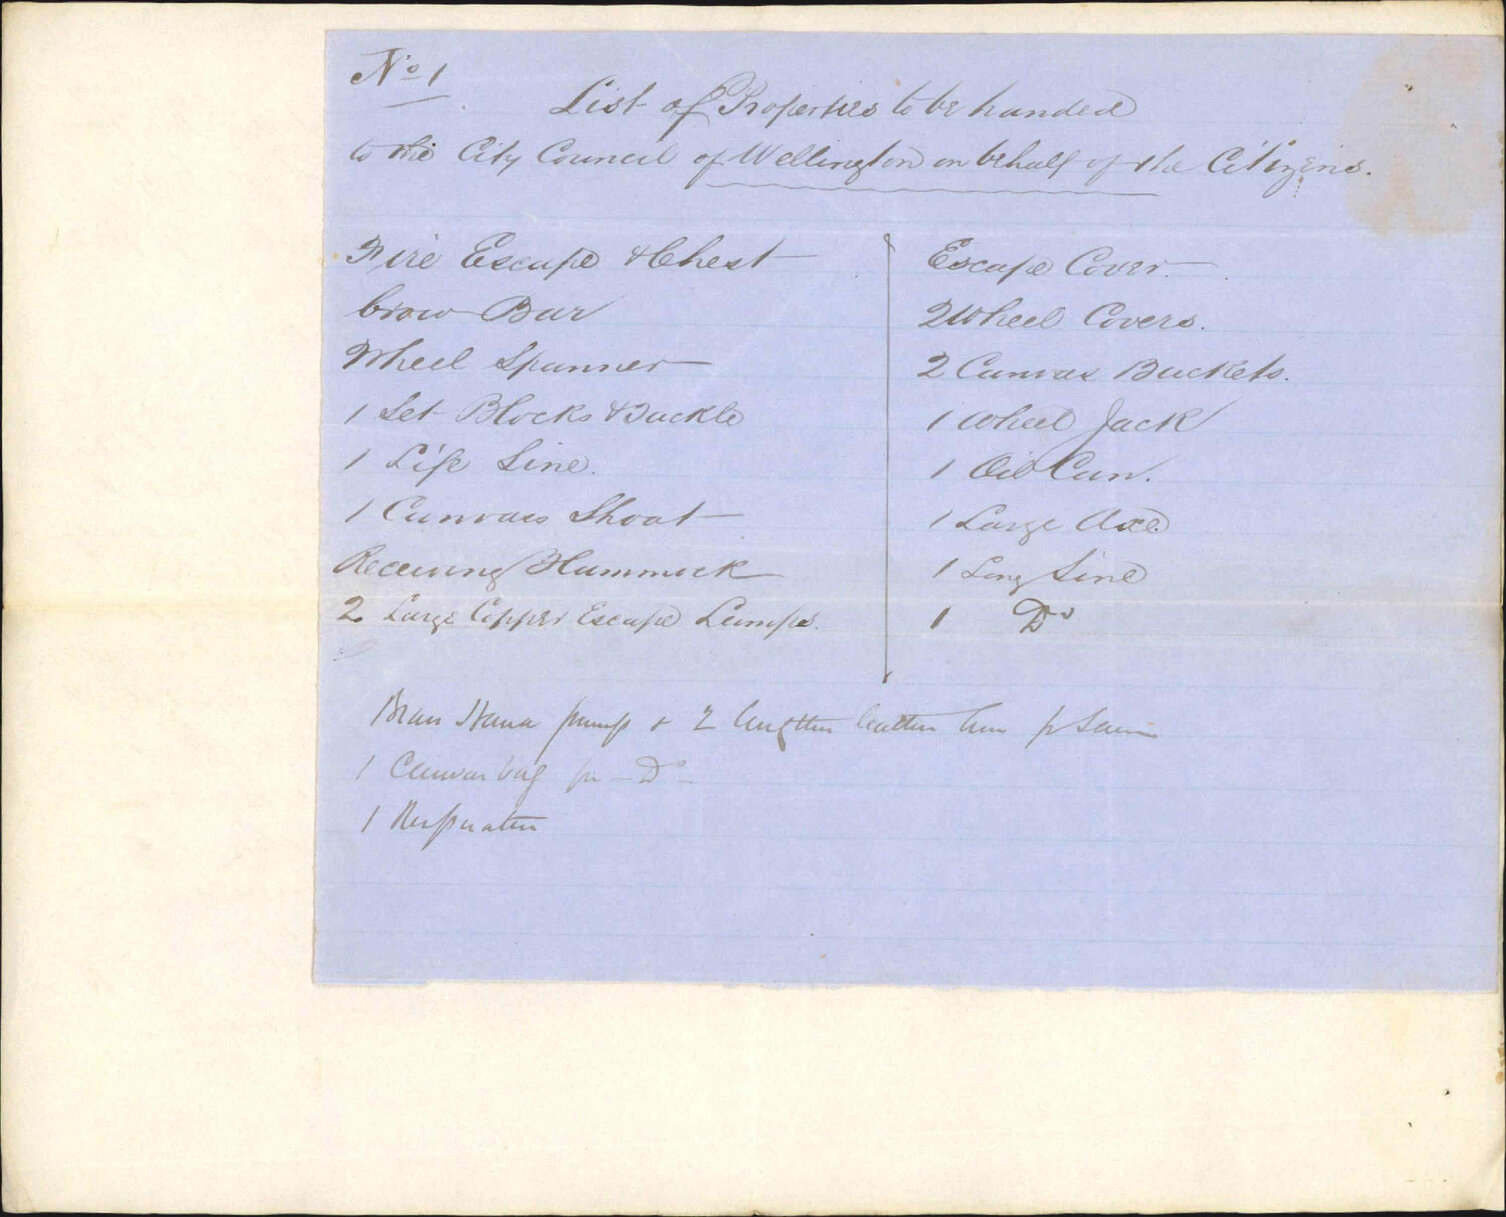 No 1
List of Properties to be handed
to the City Council of Wellington on behalf of the Citizens.
Fire Escape & Chest
Crow Bar
Wheel Spanner
1 Set Blocks & Tackle
1 Life Line.
1 Canvass Shoat
Receiving Hammock
2 Large Copper Escape Lamps.
Escape Cover
2 Wheel Covers.
2 Canvas Buckets.
1 Wheel Jack
1 Oil Can.
1 Large Axe
1 Long Line
1 Do
Brass Hand pump & 2 lengths leather hose for same
1 Canvas bag for - Do -
1 Respirator